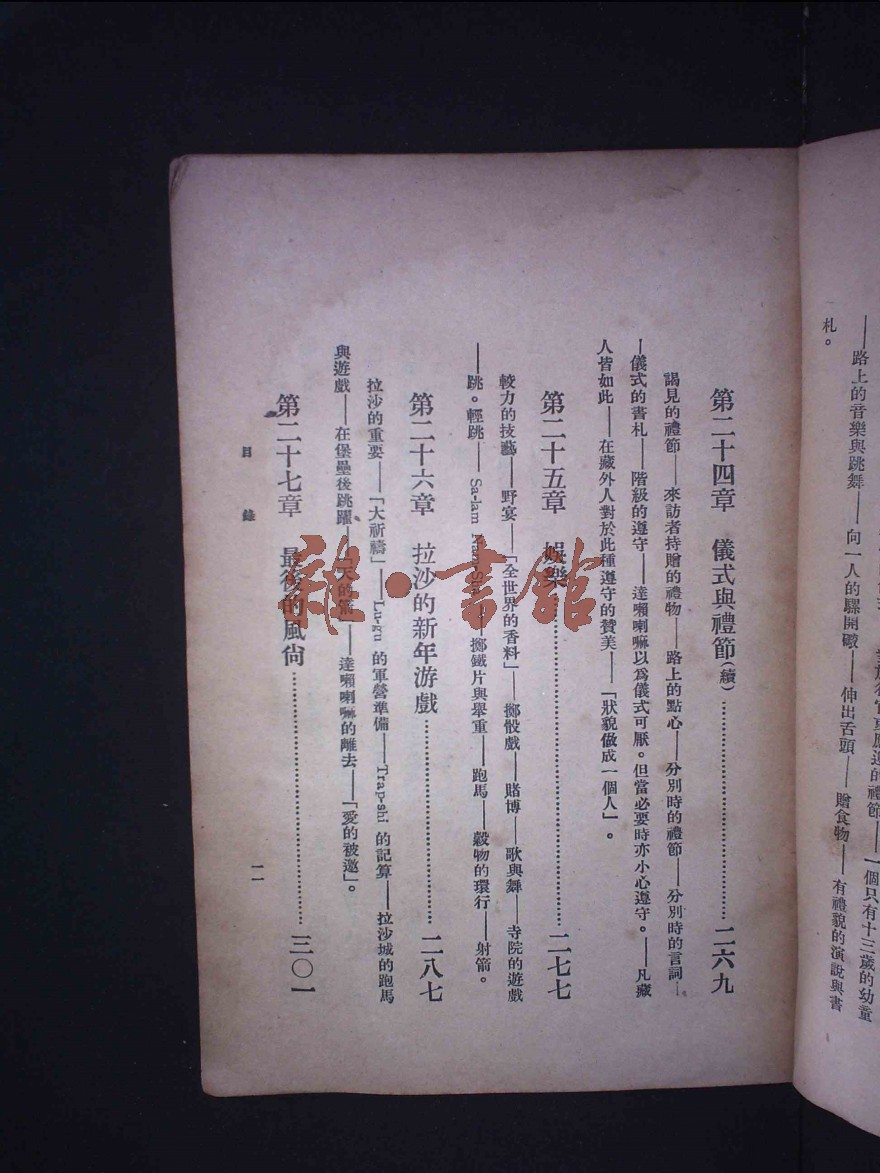 路上的音樂與跳舞——向一人的騾開礮——伸出舌頭——贈食物——有禮貌的演說與書
札。
第二十四章　儀式與禮節(續)……二六九
謁見的禮節——來訪者持贈的禮物——路上的點心——分別時的禮節——分別時的言詞—
—儀式的書札——階級的遵守——達嚹喇嘛以爲儀式可厭。但當必要時亦小心遵守。——凡藏
人皆如此——在藏外人對於此種遵守的贊美——「狀貌做成一個人」。
第二十五章　娛樂……二七七
較力的技藝——野宴——「全世界的香料」——擲骰戲——賭博——歌與舞——寺院的遊戲
——跳。輕跳——Sa-lam——擲鐵片與舉重——跑馬——穀物的環行——射箭。
第二十六章　拉沙的新年游戲……二八七
拉沙的重要——「大祈禱」——Lu-gu 的軍營準備——Trap-shi 的記算——拉沙城的跑馬
與遊戲——在堡壘後跳躍——「天的箭」——達嚹喇嘛的離去——「愛的被邀」。
第二十七章　最後的風尙……三〇一
目錄
一一
雜·書館